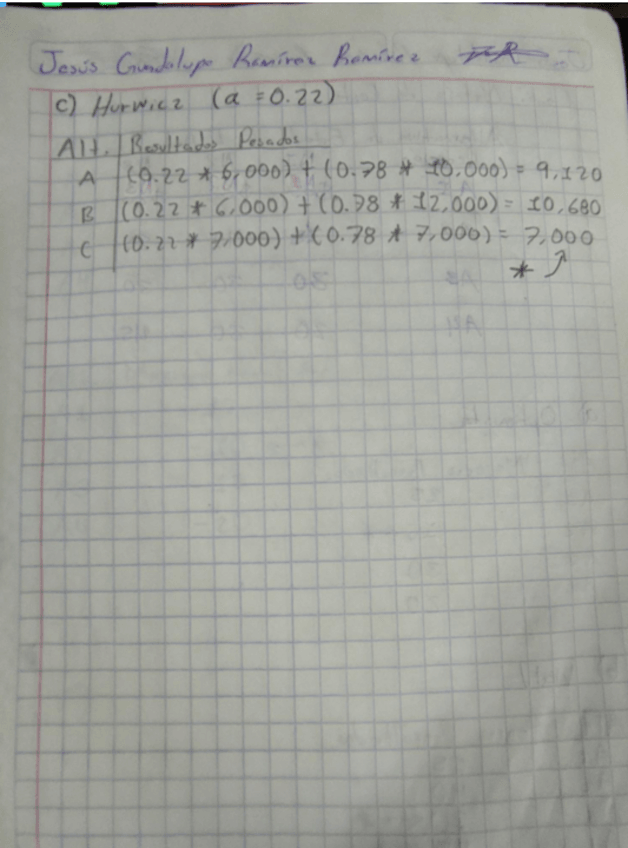 Jesús Guadalupe Ramírez Ramírez
c) Hurwicz (a = 0.22)
Alt. Resultados Pesados
A (0.22 * 6,000) + (0.78 * 10,000) = 9,120
B (0.22 * 6,000) + (0.78 * 12,000) = 10,680
C (0.22 * 7,000) + (0.78 * 7,000) = 7,000
*